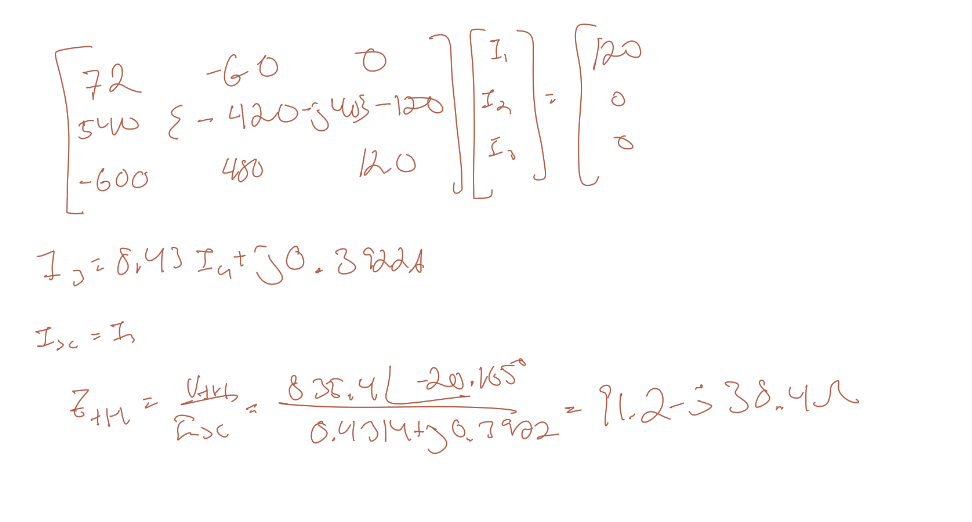 [72 -60 0] [I₁] = [120]
[540 {-420-j40} -120] [I₂] [0]
[-600 480 120] [I₃] [0]
I₃ = 8.43 I₄ + j0.3922A
I_sc = I₃
Z_TH = V_TH / I_sc = 835.4∠-20.165° / 0.4314+j0.3922 = 91.2-j38.4Ω